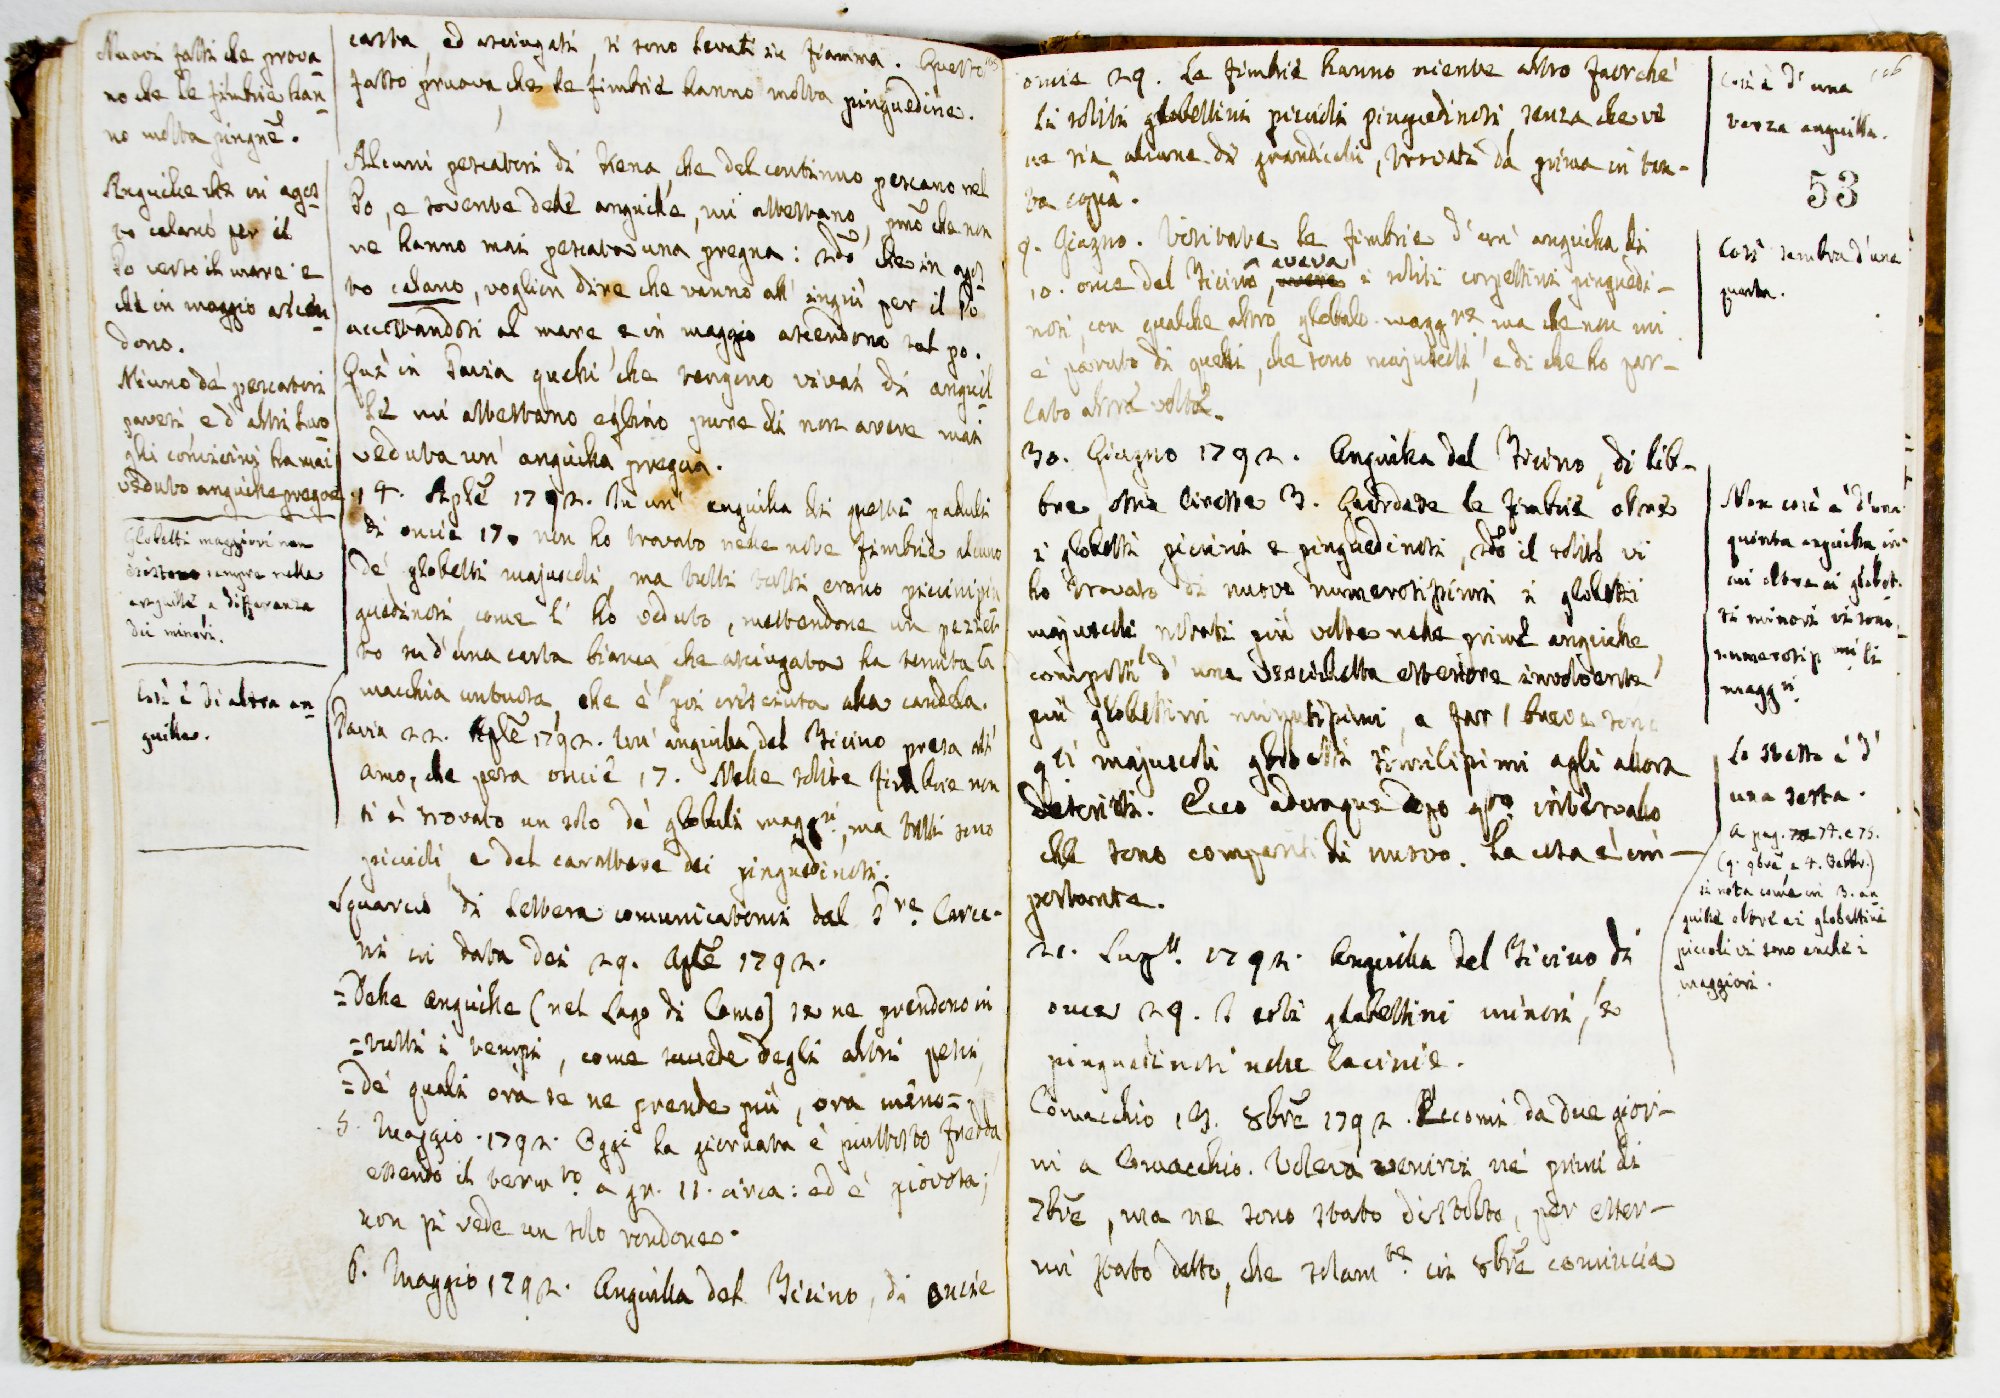 Nuovi fatti che prova
no che le fimbrie han
no molta pingue.
Anguille che in agos
to calano per il
Po verso il mare e
che in maggio ascen
dono.
Niuno de' pescatori
pavesi e d'altri luo
ghi convicini ha mai
veduto anguille pregne
Globetti maggiori non
esistono sempre nelle
anguille a differenza
dei minori.
Così è di altra an
guilla.
carta, ed asciugati, si sono levati in fiamma. Questo
fatto pruova, che le fimbrie hanno molta pinguedine.
Alcuni pescatori di, che del continuo pescano nel
Po, e sovente delle anguille, mi attestano, pmo che non
ne hanno mai pescata una pregna: 2do che in agos
to calano, voglion dire che vanno all' ingiù per il Po
accostandosi al mare, e in maggio ascendono sul po.
Quì in Pavia quelli che tengono vivai di anguil
le mi attestano eglino pure di non avere mai
veduta un' anguilla pregna.
14. Aple 1792. In un' anguilla di queste paludi
di oncie 17. non ho trovato nelle note fimbrie alcuno
de' globetti majuscoli, ma tutti tutti erano piccini pin
guedinosi, come li ho veduto, mettendone un pezzet
to su d'una carta bianca che asciugata ha tenuta la
macchia untuosa, che è poi cresciuta alla candela.
Pavia 22. Aple 1792. Un' anguilla del Ticino presa all'
amo, che pesa oncie 17. Nelle solite fimbrie non
si è trovato un solo de' globuli maggri, ma tutti sono
piccioli, e del carattere dei pinguedinosi.
Squarcio di lettera comunicatomi dal Sre. Carce-
ni in data dei 29. Aple 1792.
=Delle anguille (nel Lago di Como) se ne prendono in
=tutti i tempi, come succede degli altri pesci,
=de' quali ora se ne prende più, ora meno=.
5. Maggio. 1792. Oggi la giornata è piuttosto fredda,
essendo il termtro a gr. 11. circa: ed è piovosa;
non si vede un solo rondone.
6. Maggio 1792. Anguilla del Ticino, di oncie
106
oncie 29. Le fimbrie hanno niente altro fuorchè
li soliti globettini piccioli pinguedinosi, senza che ve
ne sia alcuno di grandicelli, trovati da prima in tan-
ta copia.
9. Giugno. Visitate le fimbrie d'un' anguilla di
10. once del Ticino, aveva i soliti corpettini pinguedi-
nosi, con qualche altro globulo maggre, ma che non mi
è paruto di quelli, che sono majuscoli, e di che ho par-
lato altre volte.
30. Giugno 1792. Anguilla del Ticino, di lib-
bre oltre 3. Guardate le fimbrie oltre
i globetti piccini e pinguedinosi, 2do il solito vi
ho trovato di nuovo numerosissimi i globetti
majuscoli notati più volte nelle prime anguille,
composti d'una vescichetta esteriore involvente
più globettini minutissimi, a far breve sono
qti majuscoli globetti similissimi agli allora
descritti. Ecco adunque dopo qto intervallo
che sono comparsi di nuovo. La cosa è im-
portante.
21. Lugl. 1792. Anguilla del Ticino di
once 29. I soli globettini minori, e
pinguedinosi nelle lacinie.
Comacchio 13. 8bre 1792. Eccomi da due gior-
ni a Comacchio. Voleva venirci ne' primi di
7bre, ma ne sono stato distolto, per esser-
mi stato detto, che solamte in 8bre comincia
Così è d'una
terza anguilla.
53
Così sembra d'una
quarta.
Non così è d'una
quinta anguilla, in
cui oltre ai globet
ti minori vi sono
numerosissimi li
maggri.
Lo stesso è d'
una sesta.
A pag. 74. e 75.
(9. 9bre, e 4. Febbr.)
si nota come in 3. an
guille oltre ai globettini
piccoli vi sono anche i
maggiori.